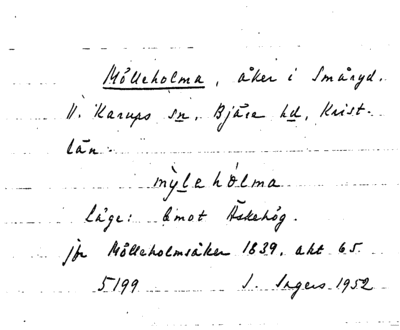 Mölleholma, åker i Småryd.
V. Karups sn. Bjäre hd, Krist.
län.
mỳlehòlma
läge: Emot Äskehög.
jfr Mölleholmsåker 1839, akt 65.
5199 I. Ingers 1952